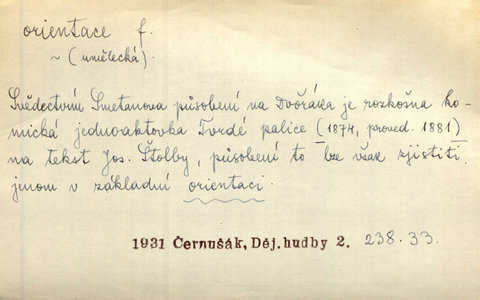 orientace f.
~ (umělecká).
Svědectvím Smetanova působení na Dvořáka je rozkošna ko-
mická jednoaktovka Tvrdé palice (1874, proved. 1881)
na text Jos. Štolby, působení to lze však zjistiti
jenom v základní orientaci.
1931 Černušák, Děj. hudby 2. 238.33.